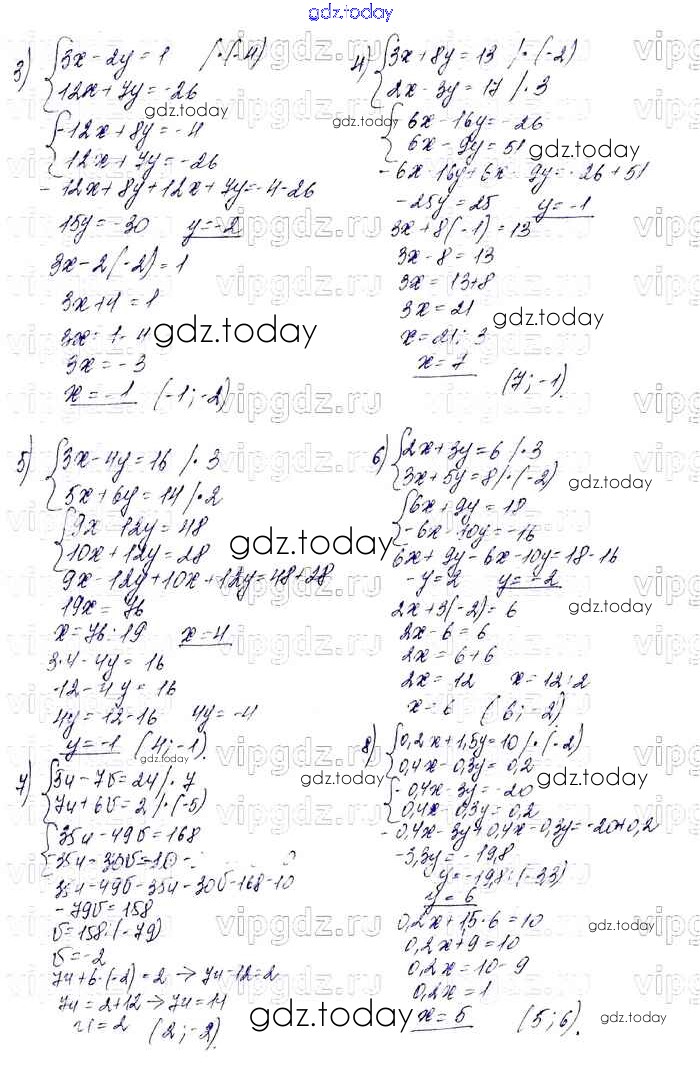 gdz.today
3) {3x-2y=1 /·(-4)
{12x+7y=-26
{-12x+8y=-4
{12x+7y=-26
-12x+8y+12x+7y=-4-26
15y=-30 y=-2
3x-2(-2)=1
3x+4=1
3x=1-4
3x=-3
x=-1 (-1;-2)
4) {3x+8y=13 /·(-2)
{2x-3y=17 /·3
{-6x-16y=-26
{6x-9y=51
-6x-16y+6x-9y=-26+51
-25y=25 y=-1
3x+8(-1)=13
3x-8=13
3x=13+8
3x=21
x=21:3
x=7
(7;-1).
5) {3x-4y=16 /·3
{5x+6y=14 /·2
{9x-12y=48
{10x+12y=28
9x-12y+10x+12y=48+28
19x=76
x=76:19 x=4
3·4-4y=16
12-4y=16
4y=12-16 4y=-4
y=-1 (4;-1).
6) {2x+3y=6 /·3
{3x+5y=8 /·(-2)
{6x+9y=18
{-6x-10y=-16
6x+9y-6x-10y=18-16
-y=2 y=-2
2x+3(-2)=6
2x-6=6
2x=6+6
2x=12 x=12:2
x=6 (6;-2)
7) {5u-7v=24 /·7
{7u+6v=2 /·(-5)
{35u-49v=168
{-35u-30v=-10
35u-49v-35u-30v=168-10
-79v=158
v=158:(-79)
v=-2
7u+6·(-2)=2 → 7u-12=2
7u=2+12 → 7u=14
u=2 (2;-2).
8) {0,2x+1,5y=10 /·(-2)
{0,4x-0,3y=0,2
{-0,4x-3y=-20
{0,4x-0,3y=0,2
-0,4x-3y+0,4x-0,3y=-20+0,2
-3,3y=-19,8
y=-19,8:(-3,3)
y=6
0,2x+1,5·6=10
0,2x+9=10
0,2x=10-9
0,2x=1
x=5 (5;6).
gdz.today
gdz.today
gdz.today
gdz.today
gdz.today
gdz.today
gdz.today
gdz.today
gdz.today
gdz.today
gdz.today
gdz.today
gdz.today
gdz.today
vipgdz.ru